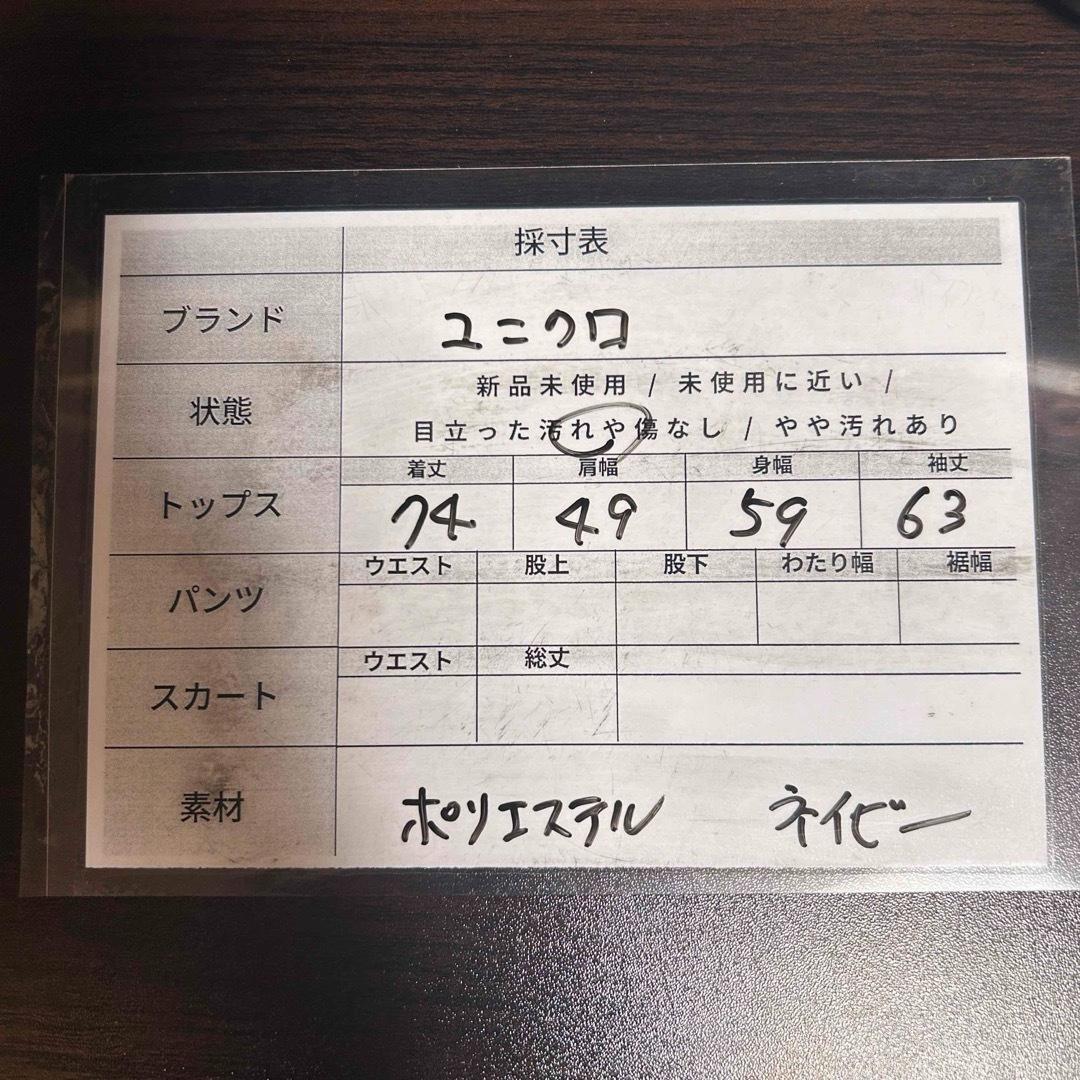 採寸表
ブランド ユニクロ
状態 新品未使用 / 未使用に近い /
目立った汚れや傷なし / やや汚れあり
トップス 着丈 肩幅 身幅 袖丈
74 49 59 63
パンツ ウエスト 股上 股下 わたり幅 裾幅
スカート ウエスト 総丈
素材 ポリエステル ネイビー